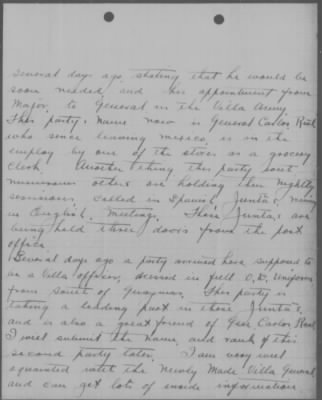 several days ago, stating that he would be
soon needed and his appointment from
Major, to General in the Villa Army.
This party's name now is General Carlos Real,
who since leaving mexico, is in the
employ by one of the stores as a grocery
clerk. Another thing this party and
numerous others are holding their nightly
sessions, called in Spanish, Junta's,
in English, Meeting. These Junta's are
being held three doors from the post
office.
Several days ago a party arrived here supposed to
be a Villa officer, dressed in full O.D. Uniform
from south of Guaymas. This party is
taking a leading part in these Junta's,
and is also a great friend of Gen. Carlos Real,
I will submit the name, and rank of this
second party later. I am very well
aquainted with the newly Made Villa General
and can get lots of inside information